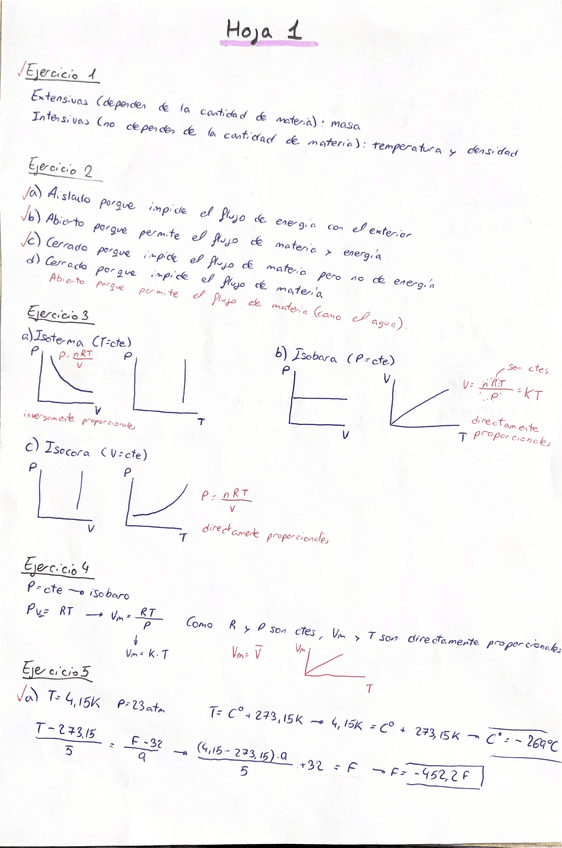 Hoja 1
✓Ejercicio 1
Extensivas (dependen de la cantidad de materia): masa
Intensivas (no dependen de la cantidad de materia): temperatura y densidad
Ejercicio 2
✓a) Aislado porque impide el flujo de energía con el exterior
✓b) Abierto porque permite el flujo de materia y energía
✓c) Cerrado porque impide el flujo de materia pero no de energía
d) Cerrado porque impide el flujo de materia
Abierto porque permite el flujo de materia (como el agua).
Ejercicio 3
a) Isoterma (T=cte)
P P = nRT/V V
P T
inversamente proporcionales
b) Isobara (P=cte)
P V
V T
V = nRT/P = KT
son ctes
directamente proporcionales
c) Isocora (V=cte)
P V
P T
P = nRT/V
directamente proporcionales
Ejercicio 4
P=cte → isobaro
PVm = RT → Vm = RT/P Como R y P son ctes, Vm y T son directamente proporcionales
↓
Vm = K·T Vm = V̄ Vm T
Ejercicio 5
✓a) T= 4,15K P=23atm T= Cº + 273,15K → 4,15K = Cº + 273,15K → Cº = -269ºC
T-273,15/5 = F-32/9 → (4,15-273,15)·9/5 +32 = F → F= -452,2F